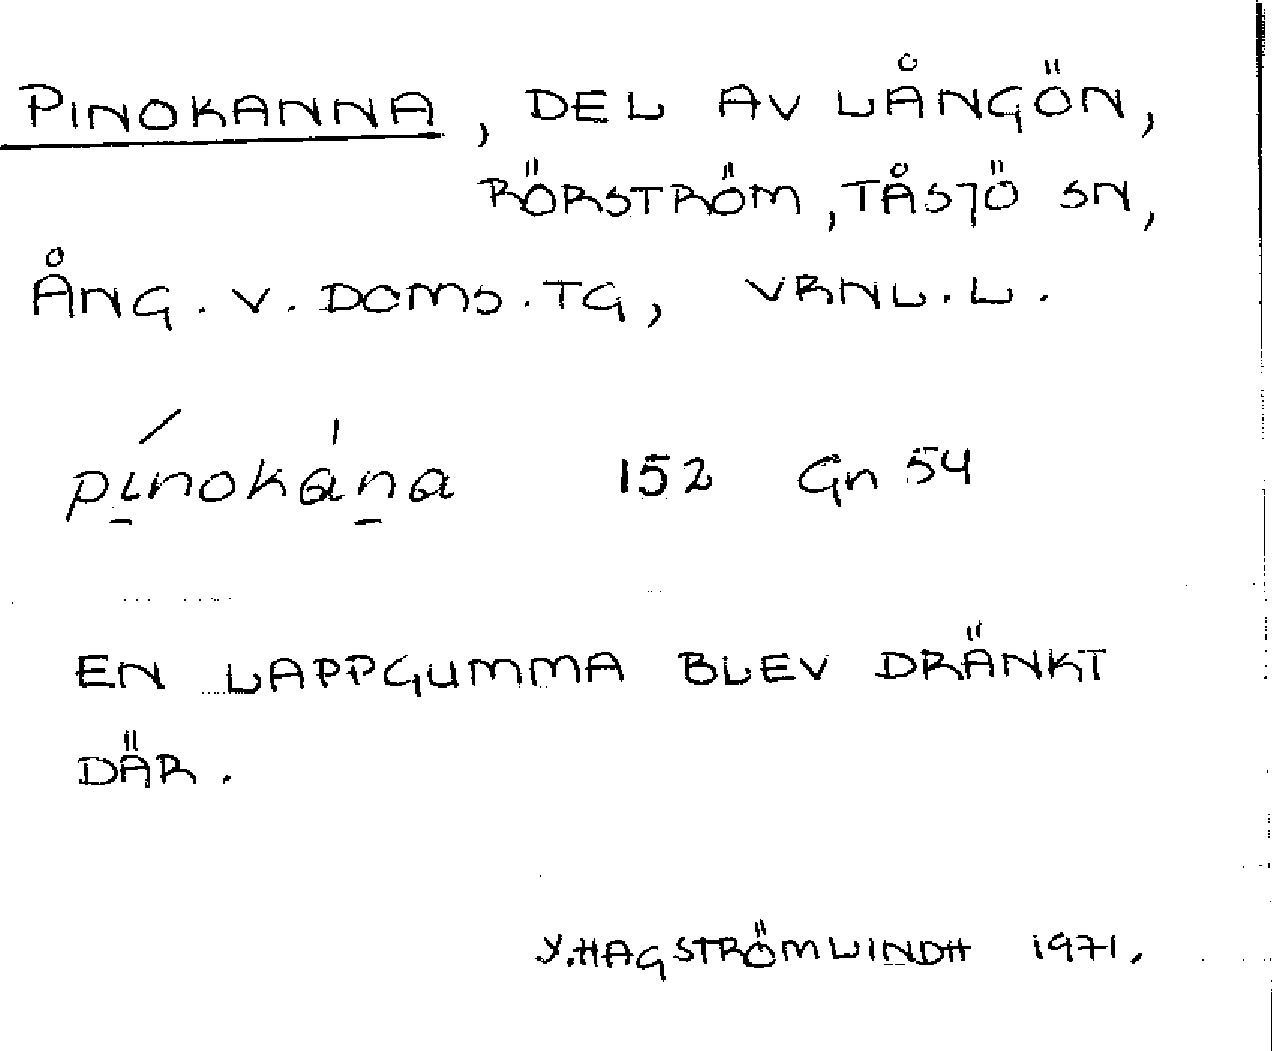 PINOKANNA, DEL AV LÅNGÖN,
RÖRSTRÖM, TÅSJÖ SN,
ÅNG. V. DOMS. TG, VRNL. L.
pı̱́nokáṉa 152 Gn 54
EN LAPPGUMMA BLEV DRÄNKT
DÄR.
Y. HAGSTRÖM LINDH 1971.